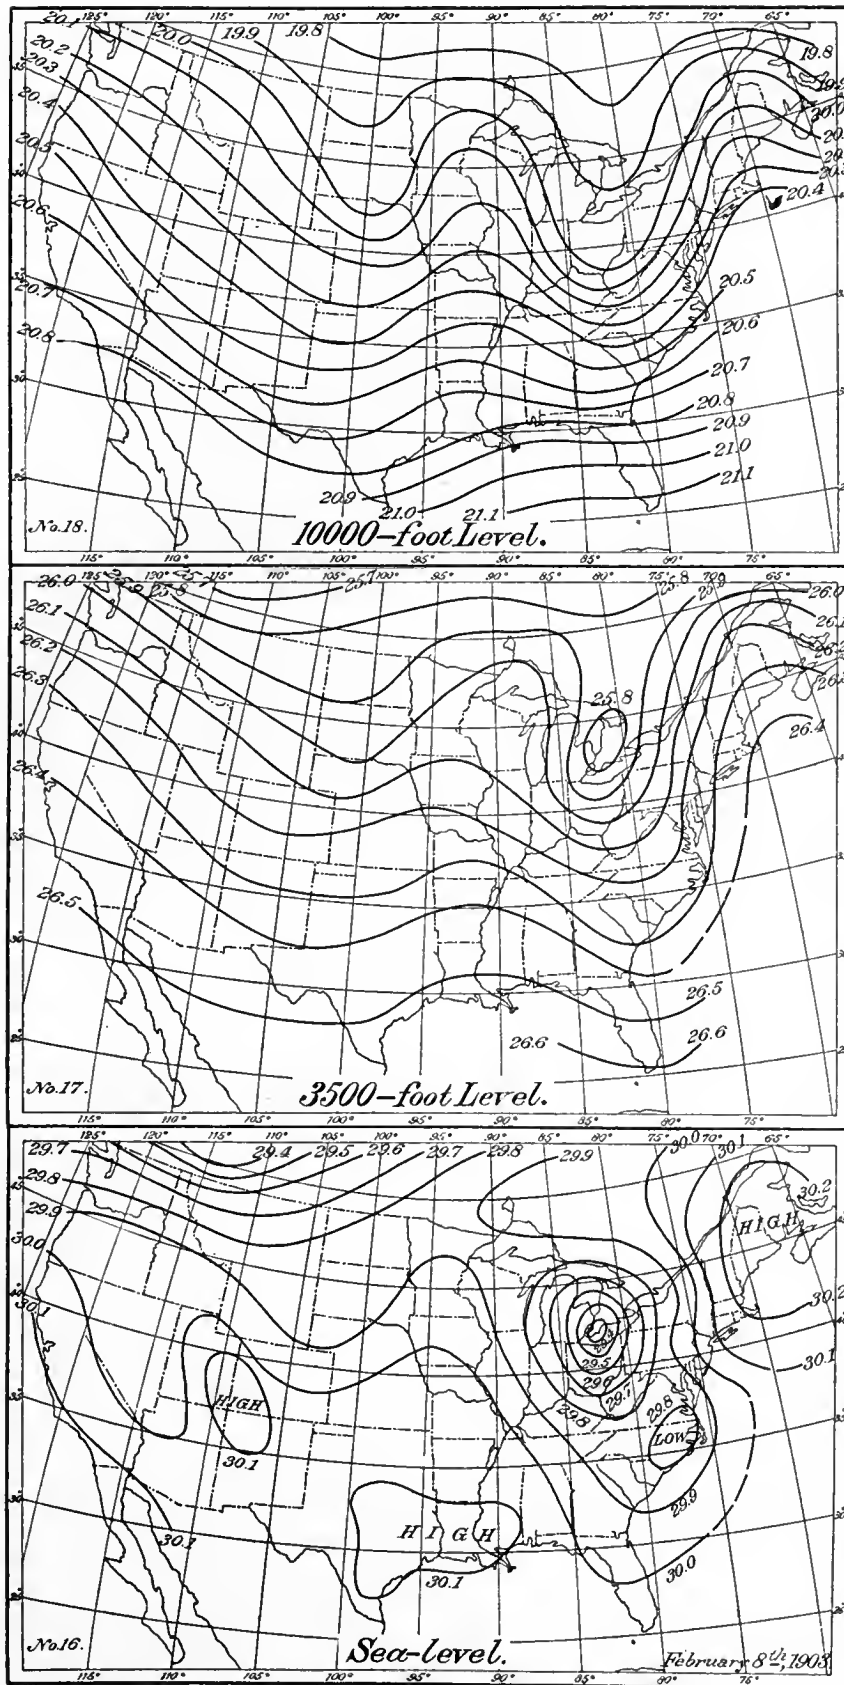 125° 120° 115° 110° 105° 100° 95° 90° 85° 80° 75° 70° 65°
20.1 20.0 19.9 19.8
20.2
20.3
20.4
20.5
20.6
20.7
20.8
19.8
20.4
20.5
20.6
20.7
20.8
20.9
21.0
21.1
20.9 21.0 21.1
No.18.
10000-foot Level.
115° 110° 105° 100° 95° 90° 85° 80° 75°
125° 120° 115° 110° 105° 100° 95° 90° 85° 80° 75° 65°
26.0 25.8 25.7 25.8 26.0
26.1 26.1
26.2
26.3
26.4
26.5
25.8
26.4
26.5
26.6 26.6
No.17.
3500-foot Level.
115° 110° 105° 100° 95° 90° 85° 80° 75°
125° 120° 115° 110° 105° 100° 95° 90° 85° 80° 75° 70° 65°
29.7 29.4 29.5 29.6 29.7 29.8 29.9 30.0 30.1
29.8
29.9
30.0
30.1
30.2
HIGH
30.2
30.1
29.5
29.6
29.7
29.8 29.8
LOW
29.9
30.0
HIGH
30.1
HIGH
30.1
30.1
No.16.
Sea-level.
February 8th, 1903
115° 110° 105° 100° 95° 90° 85° 80° 75°